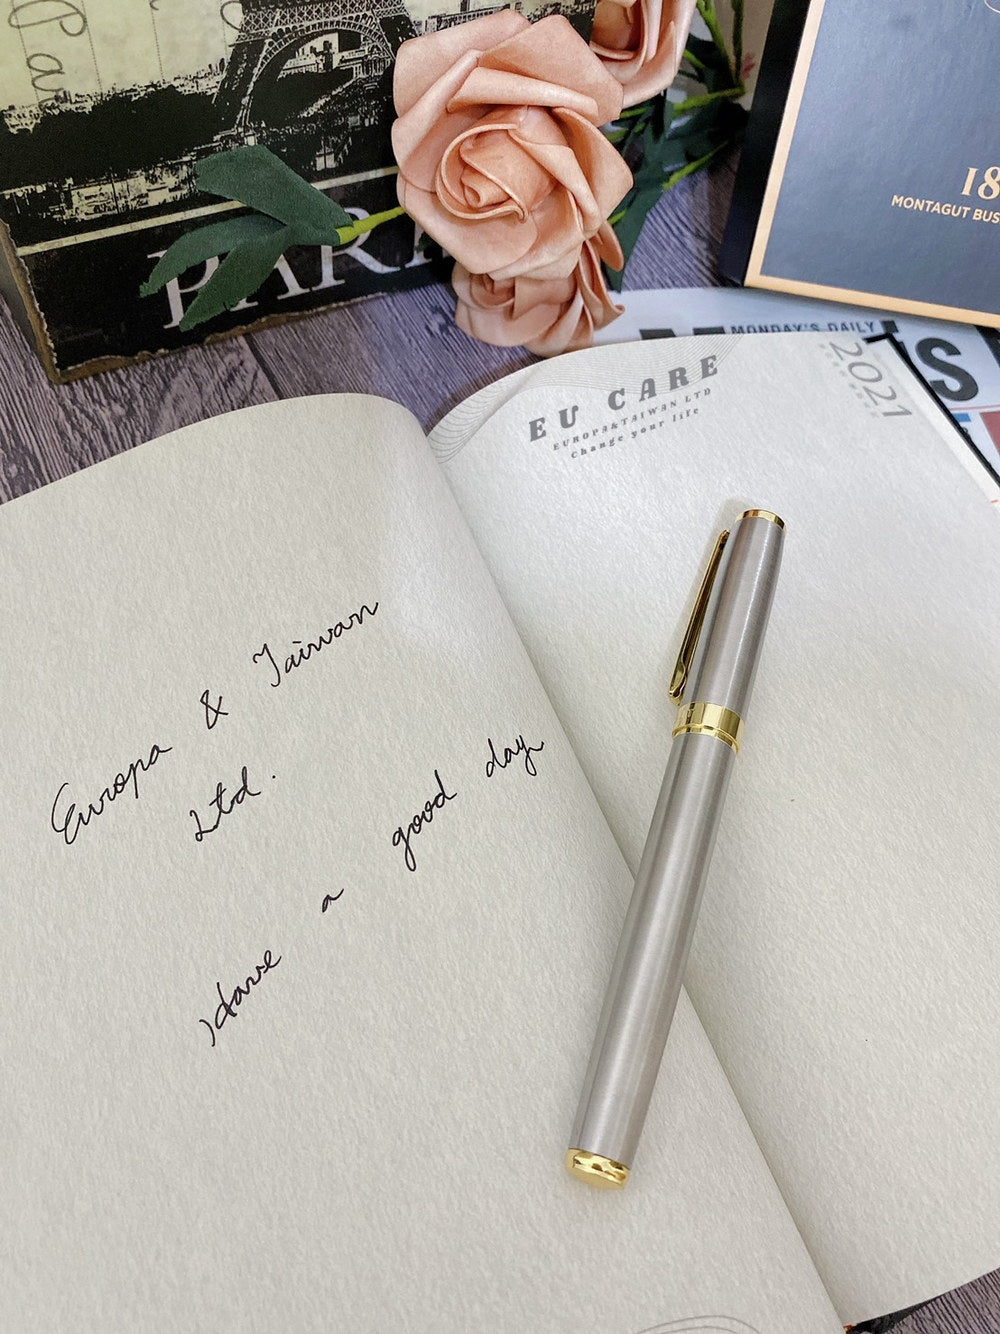 PARI
18
MONTAGUT BUS
MONDAY'S DAILY
EU CARE
EUROPA&TAIWAN LTD
Change your life
2021
Europa & Taiwan
Ltd.
Have a good day